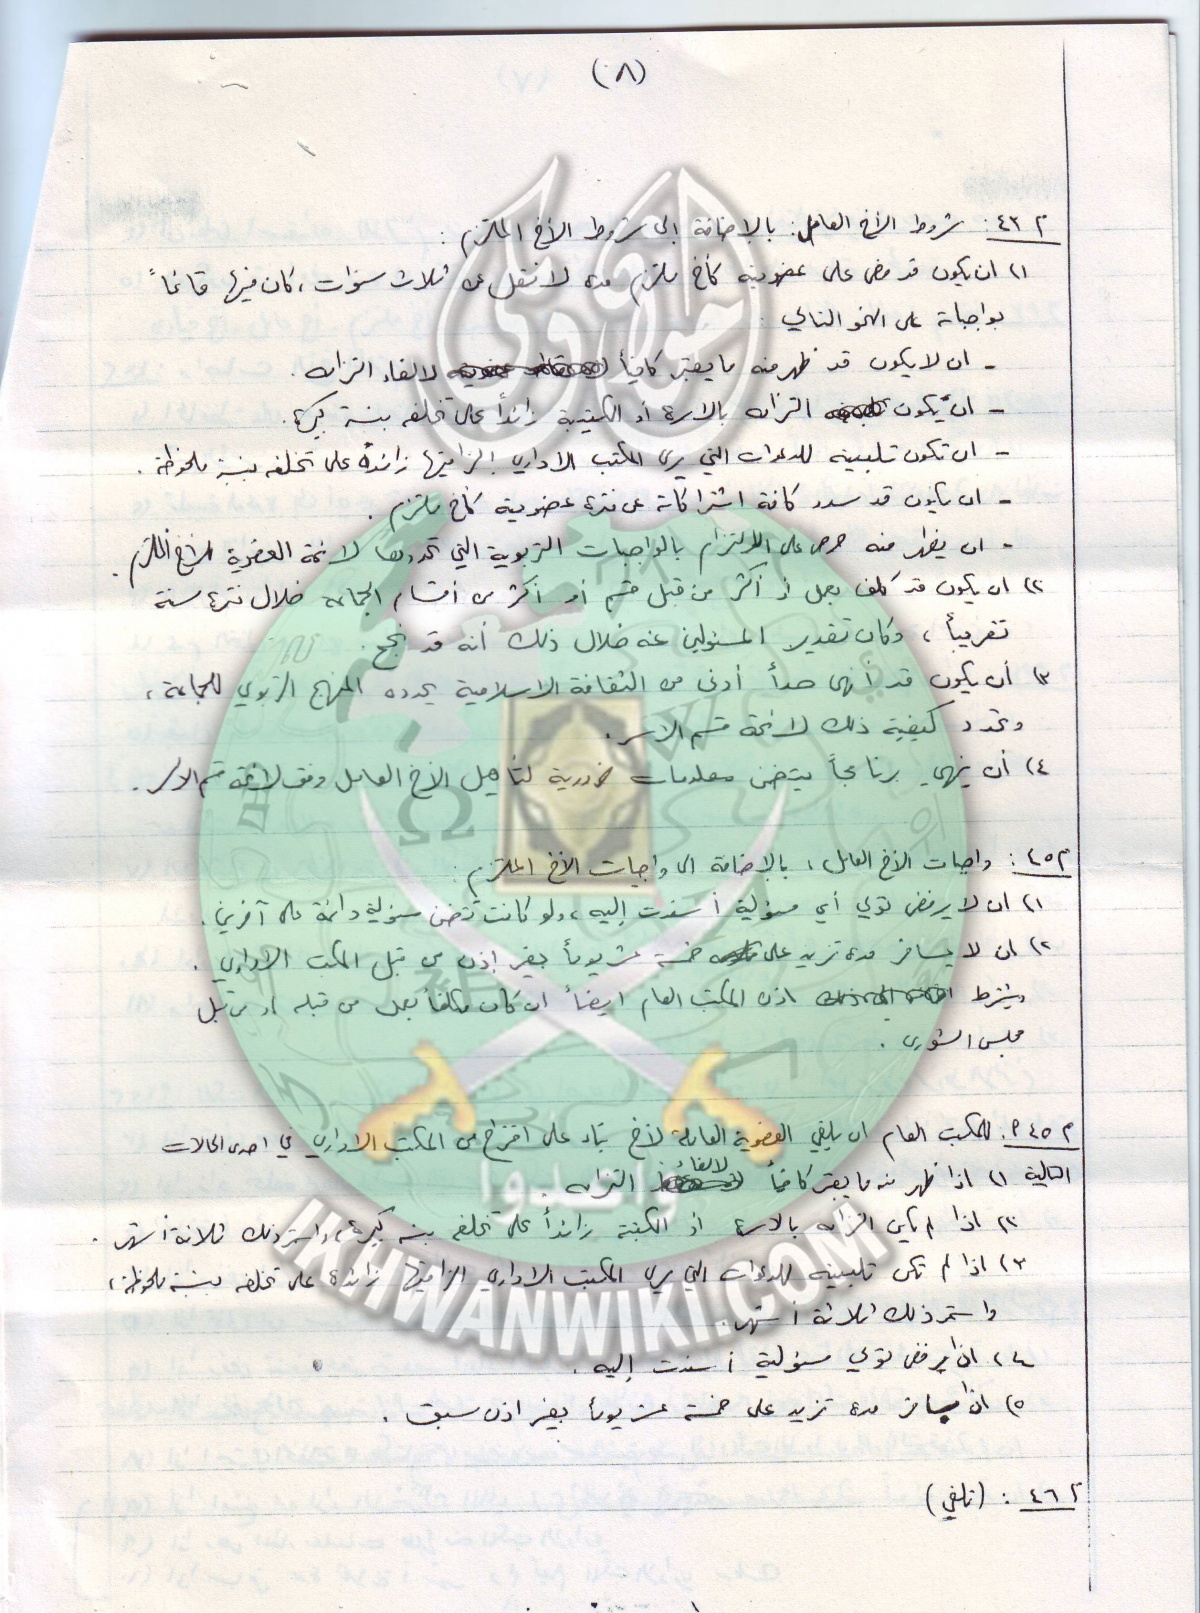 (٨)
م ٤٣: شروط الأخ العامل: بالإضافة إلى شروط الأخ الملتزم:
١) ان يكون قد مضى على عضويته كأخ ملتزم مدة لا تقل عن ثلاث سنوات، كان فيها قائماً
بواجباته على النحو التالي:
- ان لا يكون قد ظهر منه ما يعتبر كافياً لالغاء التزامه.
- ان يكون التزامه بالاسرة أو الكتيبة زائداً على تخلفه بنسبة كبيرة.
- ان تكون تلبيته للدعوات التي يرى المكتب الاداري إلزاميتها زائدة على تخلفه بنسبة ملحوظة.
- ان يكون قد سدد كافة اشتراكاته عن فترة عضويته كأخ ملتزم.
- ان يظهر منه حرص على الالتزام بالواجبات التربوية التي تحددها لائحة العضوية للأخ الملتزم.
٢) ان يكون قد كلف بعمل أو أكثر من قبل قسم أو أكثر من أقسام الجماعة خلال فترة سنة
تقريباً، وكان تقدير المسئولين عنه خلال ذلك أنه قد نجح.
٣) أن يكون قد أنهى حداً أدنى من الثقافة الاسلامية يحدده المنهج التربوي للجماعة،
وتحدد كيفية ذلك لائحة قسم الاسر.
٤) أن ينهي برنامجاً يتضمن معلومات ضرورية لتأهيل الأخ العامل وفق لائحة قسم الاسر.
م ٤٥: واجبات الأخ العامل، بالإضافة الى واجبات الأخ الملتزم:
١) ان لا يرفض تولي أي مسئولية أسندت إليه، ولو كانت تتضمن مسئولية دائمة على آخرين.
٢) ان لا يسافر مدة تزيد على خمسة عشر يوماً بغير إذن من قبل المكتب الاداري.
ويشترط اذن المكتب العام ايضاً ان كان مكلفاً بعمل من قبله او من قبل
مجلس الشورى.
م ٤٥ م. للمكتب العام ان يلغي العضوية العاملة لأخ بناء على اقتراح من المكتب الاداري في احدى الحالات
التالية ١) اذا ظهر منه ما يعتبر كافياً لالغاء التزامه.
٢) اذا لم يكن التزامه بالاسرة أو الكتيبة زائداً على تخلفه بنسبة كبيرة، واستمر ذلك ثلاثة أشهر.
٣) اذا لم تكن تلبيته للدعوات التي يرى المكتب الاداري الزاميتها زائدة على تخلفه بنسبة ملحوظة،
واستمر ذلك ثلاثة أشهر.
٤) اذا رفض تولي مسئولية أسندت إليه.
٥) اذا سافر مدة تزيد على خمسة عشر يوماً بغير اذن سبق.
م ٤٦: (تلغى)
إخوان ويكي
وأعدوا
IKHWANWIKI.COM